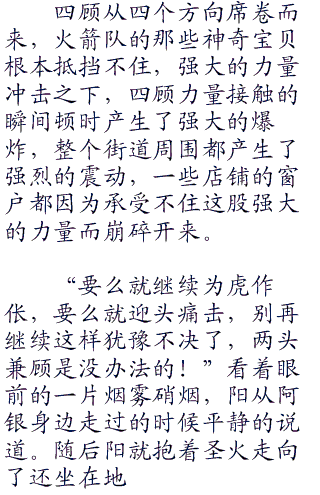 四顾从四个方向席卷而
来，火箭队的那些神奇宝贝
根本抵挡不住，强大的力量
冲击之下，四顾力量接触的
瞬间顿时产生了强大的爆
炸，整个街道周围都产生了
强烈的震动，一些店铺的窗
户都因为承受不住这股强大
的力量而崩碎开来。
“要么就继续为虎作
伥，要么就迎头痛击，别再
继续这样犹豫不决了，两头
兼顾是没办法的！”看着眼
前的一片烟雾硝烟，阳从阿
银身边走过的时候平静的说
道。随后阳就抱着圣火走向
了还坐在地